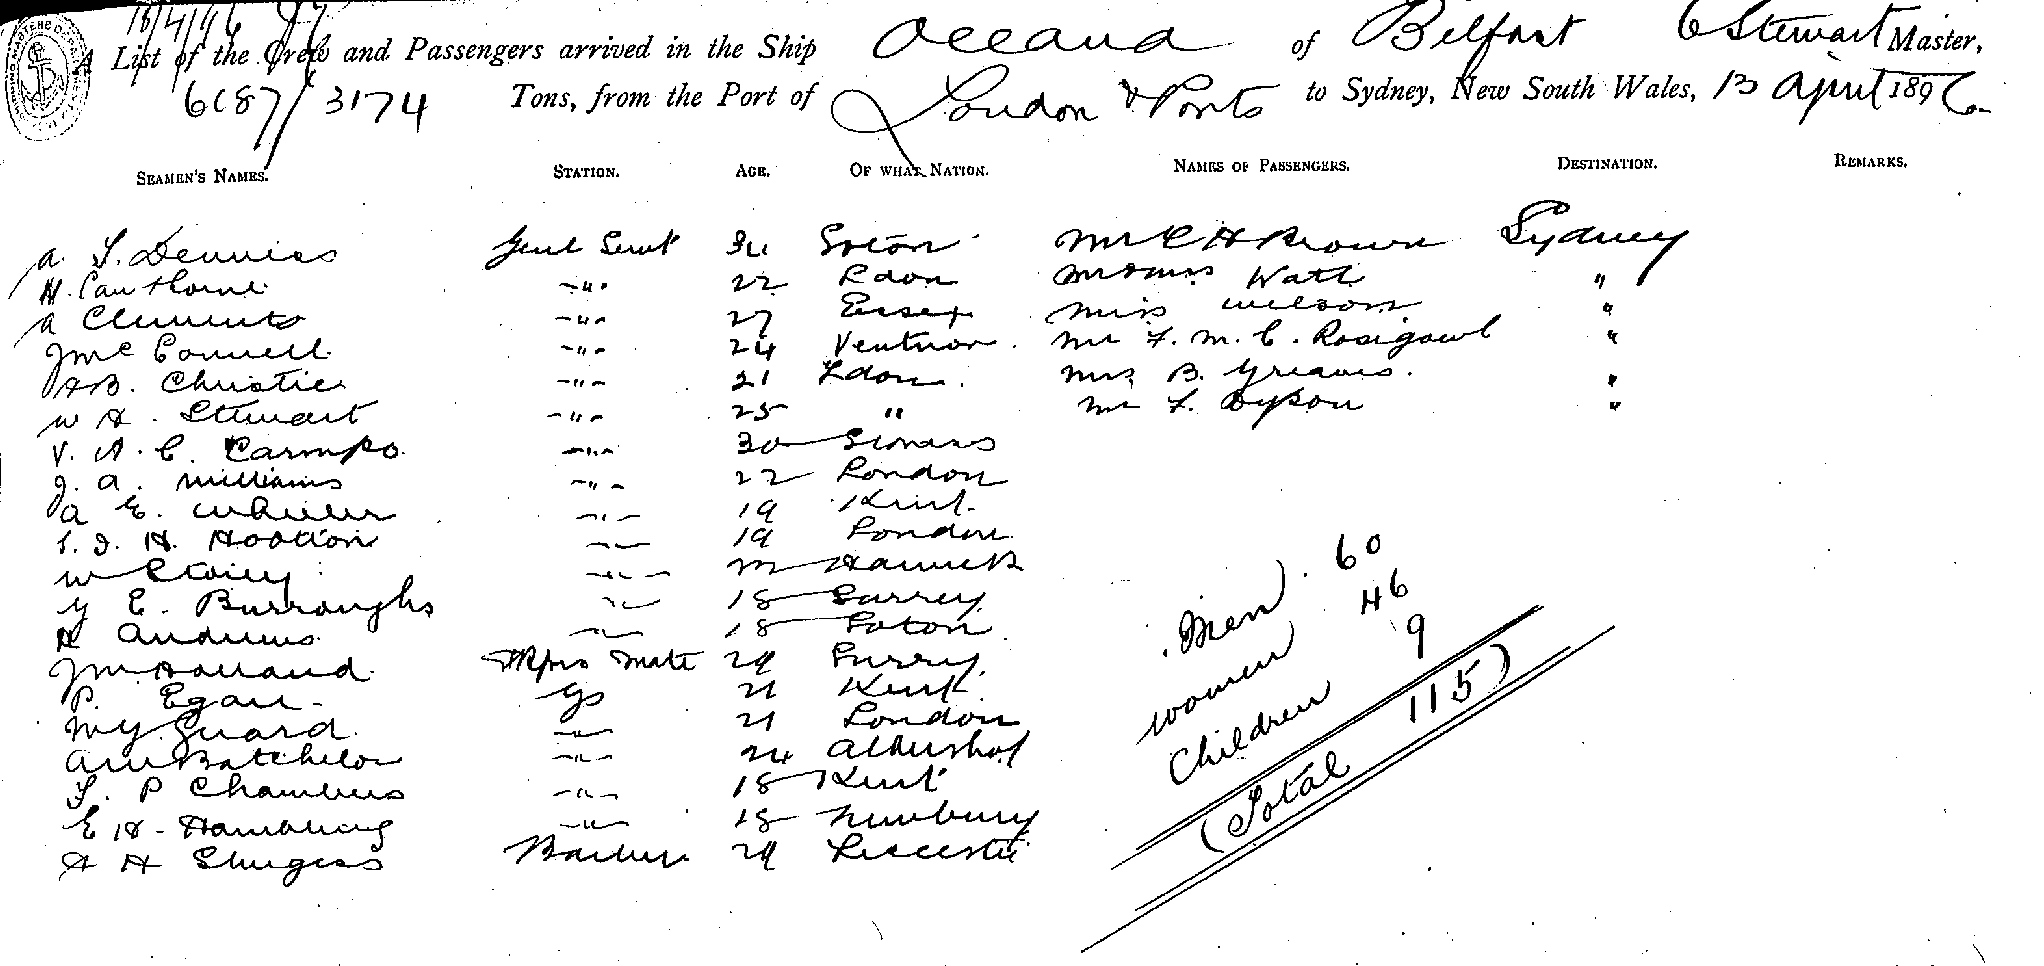 15/4/96
A List of the Crew and Passengers arrived in the Ship Oceana of Belfast C Stewart Master,
6087/3174 Tons, from the Port of London & Ports to Sydney, New South Wales, 13 April 1896
SEAMEN'S NAMES. STATION. AGE. OF WHAT NATION. NAMES OF PASSENGERS. DESTINATION. REMARKS.
A. S. Denniss Genl Servt 34 Soton Mr C H Brown Sydney
H. Cawthorne -"- 22 Ldon Mr & Miss Watt "
A Clements -"- 27 Essex Miss Wilson "
J McConnell -"- 24 Ventnor. Mr F. M. C. "
H B. Christie -"- 21 Ldon. Mrs B. Greaves. "
W H. Stewart -"- 25 " Mr F. Dyson "
V. A. C. -"- 30
J. A. Williams -"- 22 London
A E. Wheeler -"- 19 Kent
H. Hootton -"- 19 London
W -"- Harwich
G E. Burroughs -"- 18 Surrey
H Andrews -"- 18 Soton
J M Holland Mate 29 Surrey
P. Egan GS 21 Kent
Guard -"- 21 London
A W Batchelor -"- 24 Aldershot
S. P Chambers -"- 18 Kent
E H. Hambling -"- 18 Newbury
H H Sturgess Barber 29 Leicester
Men 60
Women 46
Children 9
(Total 115)